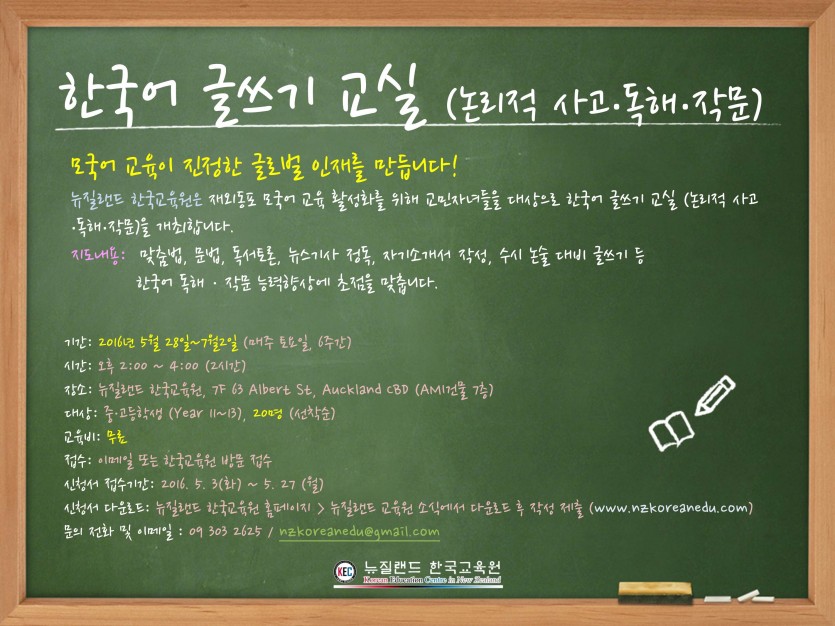 한국어 글쓰기 교실 (논리적 사고·독해·작문)
모국어 교육이 진정한 글로벌 인재를 만듭니다!
뉴질랜드 한국교육원은 재외동포 모국어 교육 활성화를 위해 교민자녀들을 대상으로 한국어 글쓰기 교실 (논리적 사고
·독해·작문)을 개최합니다.
지도내용: 맞춤법, 문법, 독서토론, 뉴스기사 정독, 자기소개서 작성, 수시 논술 대비 글쓰기 등
한국어 독해 · 작문 능력향상에 초점을 맞춥니다.
기간: 2016년 5월 28일~7월2일 (매주 토요일, 6주간)
시간: 오후 2:00 ~ 4:00 (2시간)
장소: 뉴질랜드 한국교육원, 7F 63 Albert St, Auckland CBD (AMI건물 7층)
대상: 중·고등학생 (Year 11~13), 20명 (선착순)
교육비: 무료
접수: 이메일 또는 한국교육원 방문 접수
신청서 접수기간: 2016. 5. 3(화) ~ 5. 27 (월)
신청서 다운로드: 뉴질랜드 한국교육원 홈페이지 > 뉴질랜드 교육원 소식에서 다운로드 후 작성 제출 (www.nzkoreanedu.com)
문의 전화 및 이메일 : 09 303 2625 / nzkoreanedu@gmail.com
KEC 뉴질랜드 한국교육원
Korean Education Centre in New Zealand